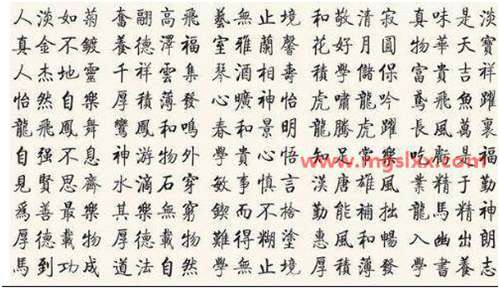 人淡如菊 奮翮高飛 藝無止境 和敬清寂 真味是淡
真金不鍍 養德澤福 室雅蘭馨 花好月圓 物華天寶
人杰地靈 千祥雲集 琴酒相壽 積學儲保 富貴吉祥
怡然自樂 厚積薄發 心曠神怡 虎嘯龍吟 鳶飛魚躍
龍飛鳳舞 鸞鳳和鳴 春和景明 龍騰虎躍 長風萬裏
自强不息 神游物外 學貴心 知足常樂 吃虧是福
www.mgslxx.com
見賢思齊 水滴石穿 敏事慎言 漢唐雄風 業精于勤
爲善最樂 其樂無窮 鍥而不捨 勤能補拙 龍馬精神
厚德載物 厚德載物 難得糊塗 惠風和暢 入幽出朗
馬到功成 道法自然 學無止境 厚積薄發 學書養志